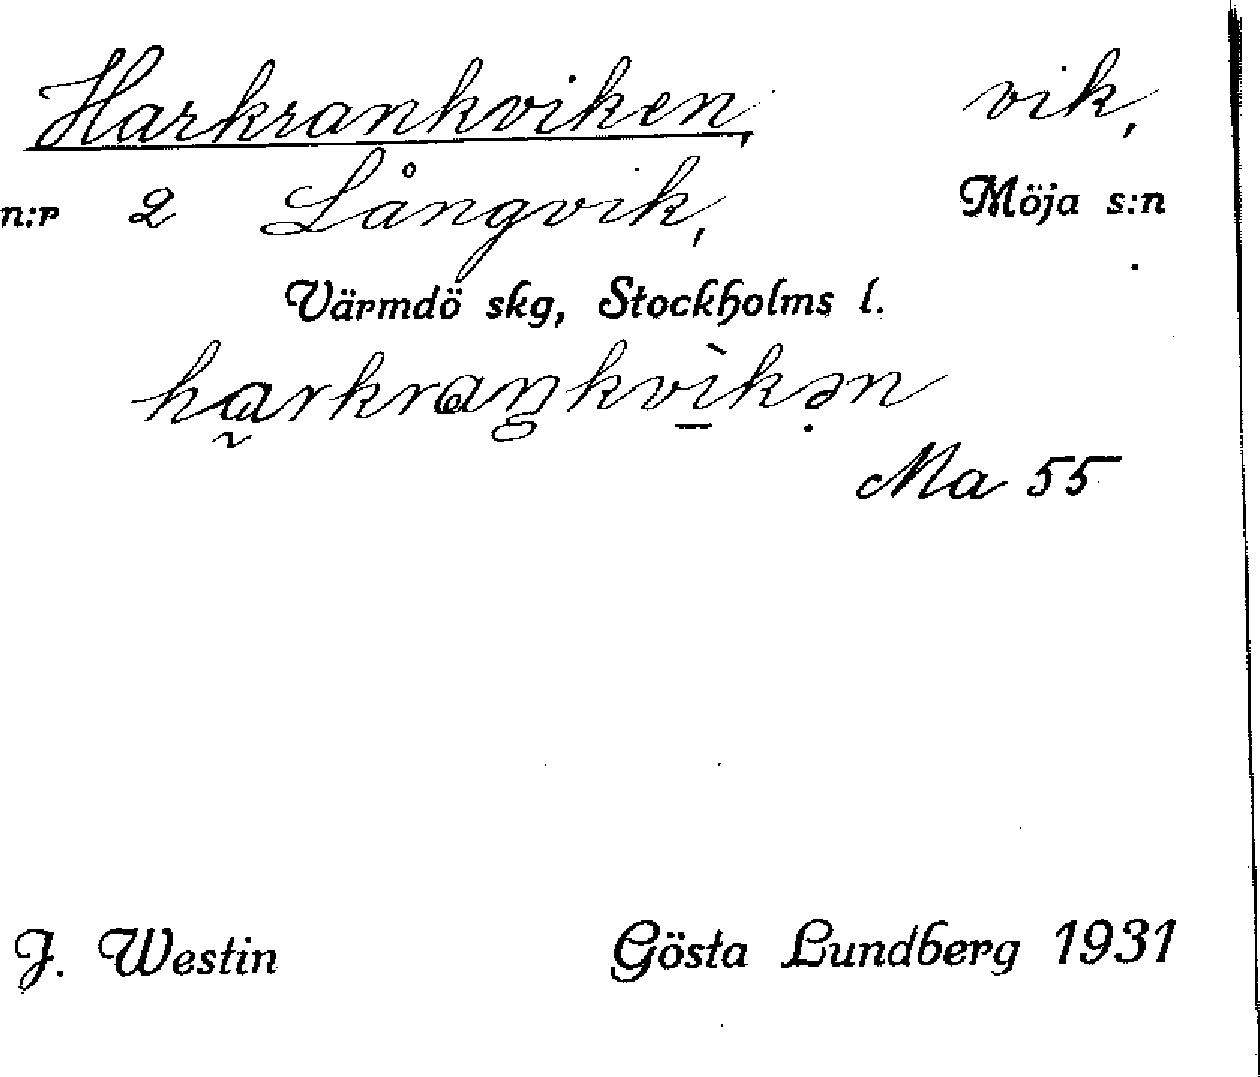 Harkrankviken, vik,
n:r 2 Långvik, Möja s:n
Värmdö skg, Stockholms l.
harkraŋkvìkən
Ma 55
J. Westin Gösta Lundberg 1931